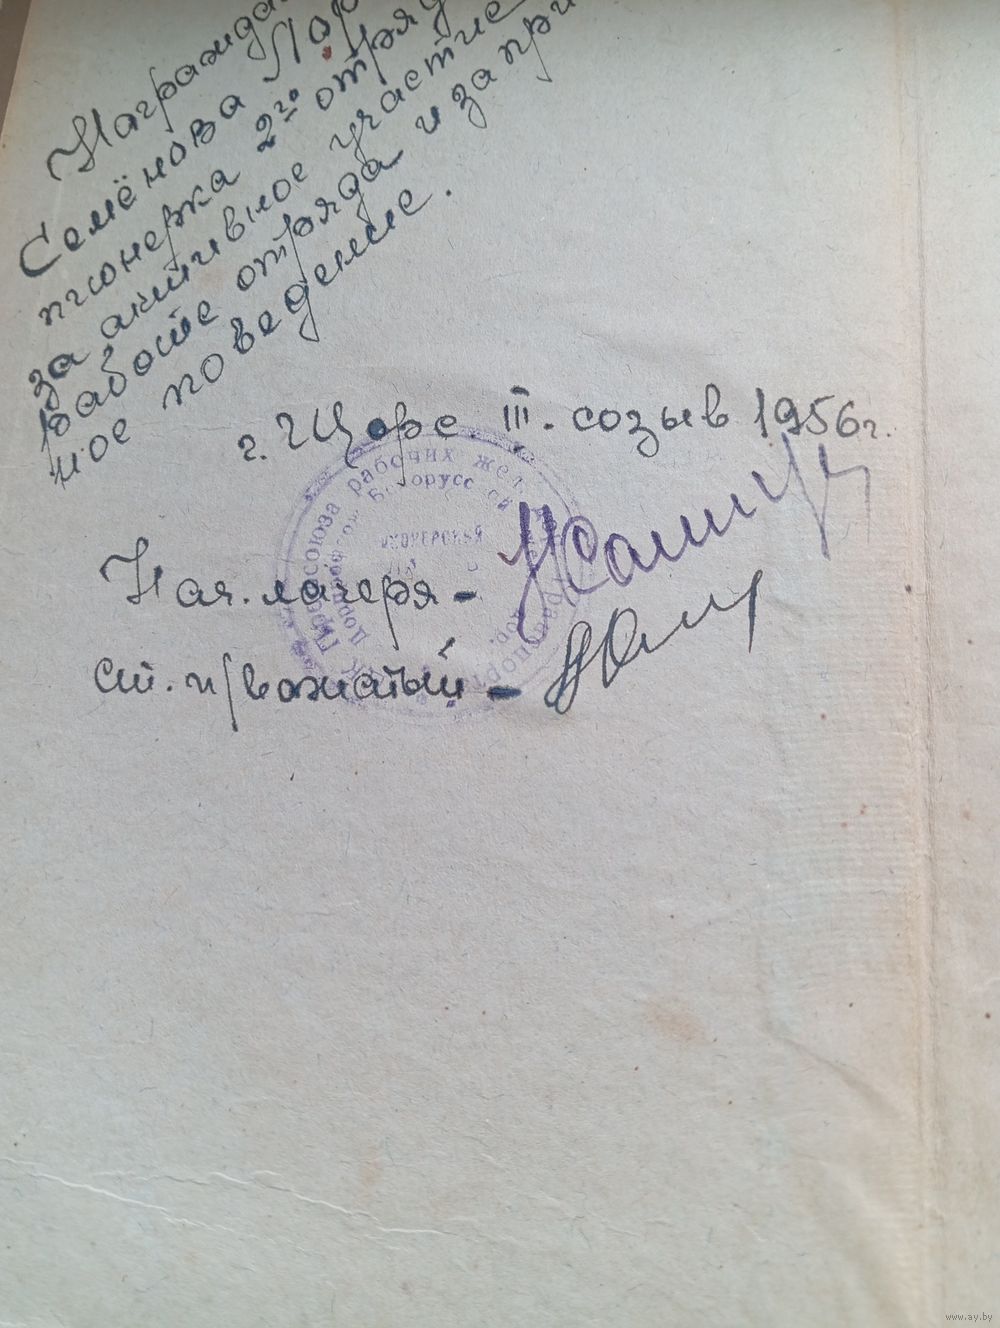 Награжда
Семёнова Лар
пионерка 2го отряд
за активное участие
работе отряда и за при
ное поведение.
г. Щорс. III. созыв 1956г.
Нач. лагеря -
ст. п/вожатый -
союза рабочих жел
Белорусской
www.ay.by